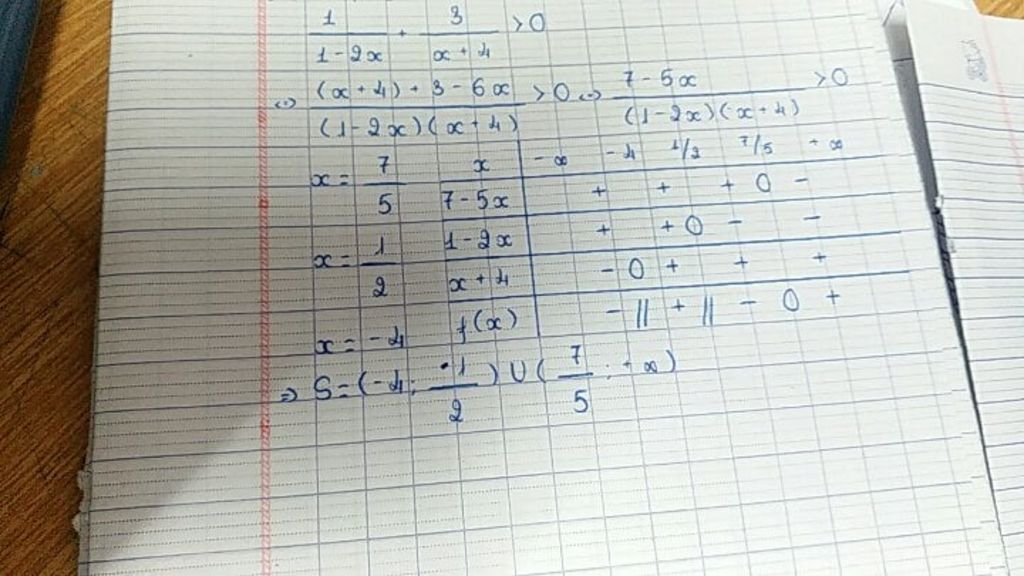 1/(1-2x) + 3/(x+4) >0
<=> ((x+4)+3-6x)/((1-2x)(x+4)) >0 <=> (7-5x)/((1-2x)(x+4)) >0
x = 7/5
x = 1/2
x = -4
x | -∞ -4 1/2 7/5 +∞
7-5x | + + + 0 -
1-2x | + + 0 - -
x+4 | - 0 + + +
f(x) | - || + || - 0 +
=> S=(-4; 1/2) U (7/5; +∞)